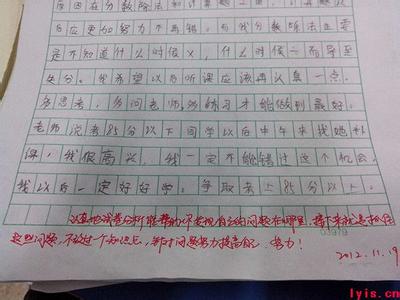 原因在分数除法和计算题上面,
后应更加努力不再错,而我分数除法主要
是不知道什么时候×,什么时候÷而导至
失分。我希望以后听课应该再认真一点,
多思考,多问老师,多练习才能做到最好。
老师说考85分以下同学以后中午来找她补
课,我很高兴,我一定不能错过这个机会。
我以后一定好好学。争取考上85分以上。
认真地试卷分析能帮助你发现自己的问题在哪里,接下来就是抓住
这些问题,不放过一个知识点,针对问题努力提高自己,努力!
2012.11.19
lyis.cn